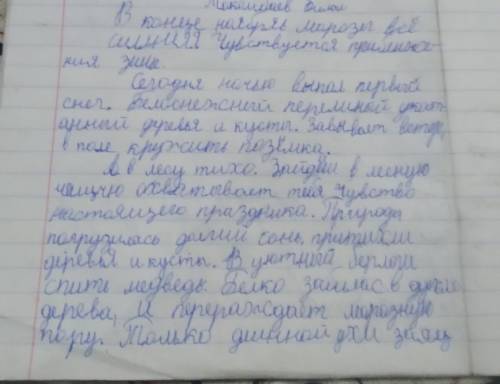 В конце ноября морозы всё
сильнея Чувствуется приближе-
ния зимы.
Сегодня ночью выпал первый
снег. Белоснежный пелериной
деревья и кусты. Завывает ветер,
в поле кружить позёмка.
А в лесу тихо. Зайдёш в лесную
чащчю охватывает тебя чувство
настоящего праздника. Природа
погрузилась долгий сонь, притихли
деревья и кусты. В уютный берлоги
спить медведь. Белка запилас в дупле
дерева, И пережидает морозную
пору. Только длинной ухи заяц